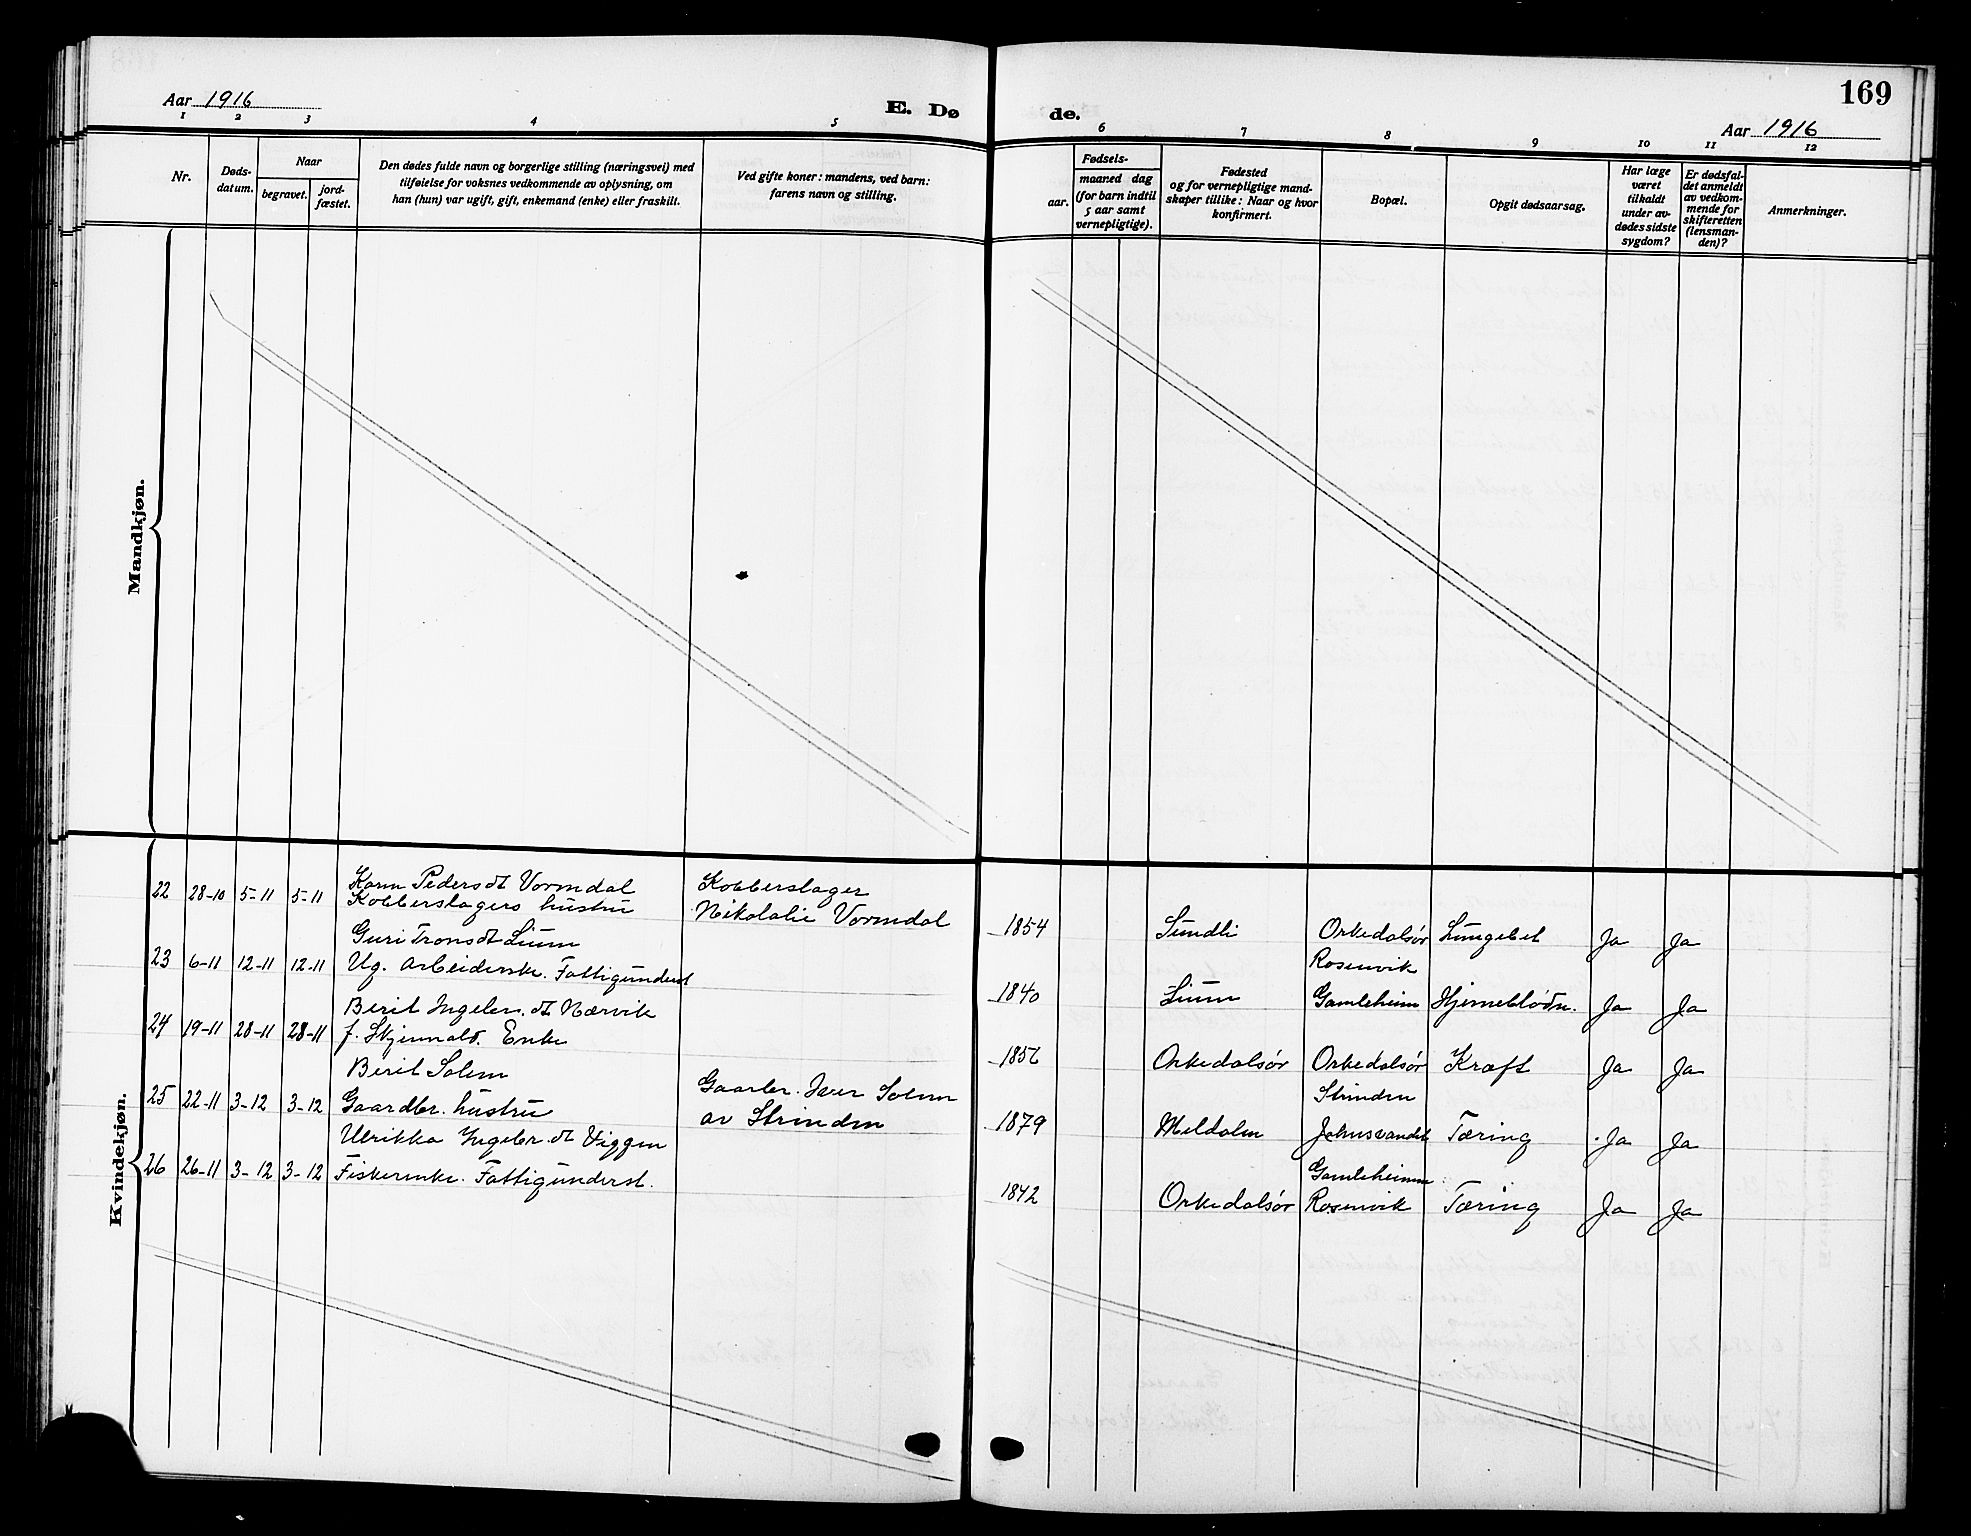 Aar 1916
E. Dø
de.
169
Aar 1916
1 2 3 4 5 6 7 8 9 10 11 12
Nr.
Døds-
datum.
Naar
begravet.
jord-
fæstet.
Den dødes fulde navn og borgerlige stilling (næringsvei) med
tilføielse for voksnes vedkommende av oplysning, om
han (hun) var ugift, gift, enkemand (enke) eller fraskilt.
Ved gifte koner: mandens, ved barn:
farens navn og stilling.
Fødsels-
aar.
maaned dag
(for barn indtil
5 aar samt
vernepligtige).
Fødested
og for vernepligtige mand-
skaper tillike: Naar og hvor
konfirmert.
Bopæl.
Opgit dødsaarsag.
Har læge
været
tilkaldt
under av-
dødes sidste
sygdom?
Er dødsfal-
det anmeldt
av vedkom-
mende for
skifteretten
(lensman-
den)?
Anmerkninger.
Mandkjøn.
Kvindekjøn.
22 28-10 5-11 5-11
Karen Pedersdt Vormdal
Kobberslagers hustru
Kobberslager
Nikolalie Vormdal
1854 Sundli Orkedalsør Ja Ja
23 6-11 12-11 12-11
Guri Tronsdt Lium
Ug. Arbeiderske. Fattigunderst
1840 Lium
Rosenvik
Gamleheim Hjerneblødn. Ja Ja
24 19-11 28-11 28-11
Berit Ingebr.dt Nærvik
f. Skjenhald. Enke
1856 Orkedalsør Orkedalsør Kræft Ja Ja
25 22-11 3-12 3-12
Berit Solem
Gaardbr. hustru
Gaarbr. Iver Solem
av Strinden
1879 Meldalen
Strinden
Tæring Ja Ja
26 26-11 3-12 3-12
Ulrikka Ingebr.dt Viggen
Fiskerenke. Fattigunderst.
1842 Orkedalsør
Gamleheimen
Rosenvik Tæring Ja Ja